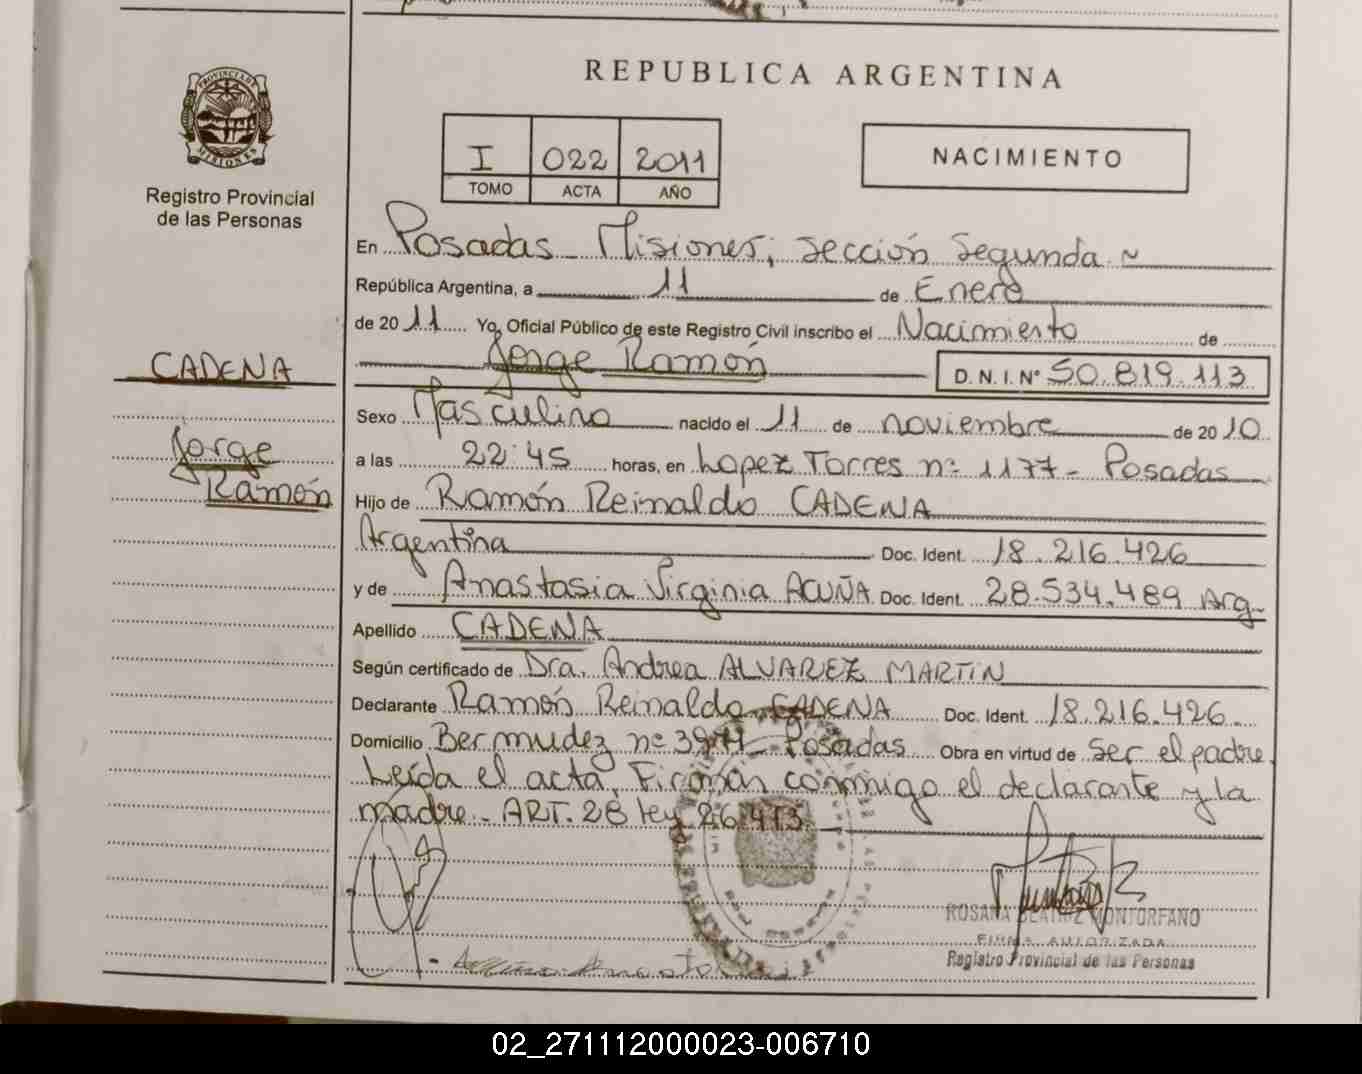 PROVINCIA DE
MISIONES
Registro Provincial
de las Personas
CADENA
Jorge
Ramón
REPUBLICA ARGENTINA
I 022 2011
TOMO ACTA AÑO
NACIMIENTO
En Posadas - Misiones, sección segunda ~
República Argentina, a 11 de Enero
de 2011 Yo, Oficial Público de este Registro Civil inscribo el Nacimiento de
Jorge Ramón D.N.I. N° 50.819.113
Sexo Masculino nacido el 11 de noviembre de 2010
a las 22:45 horas, en Lopez Torres n° 1177 - Posadas
Hijo de Ramón Reinaldo CADENA
Argentina Doc. Ident. 18.216.426
y de Anastasia Virginia ACUÑA Doc. Ident. 28.534.489 Arg-
Apellido CADENA
Según certificado de Dra. Andrea ALVAREZ MARTIN
Declarante Ramón Reinaldo CADENA Doc. Ident. 18.216.426
Domicilio Bermudez n° Posadas Obra en virtud de Ser el padre.
Leída el acta, Firman conmigo el declarante y la
madre - ART. 28 ley 26.413.
ROSANA BEATRIZ MONTORFANO
FIRMA AUTORIZADA
Registro Provincial de las Personas
02_271112000023-006710